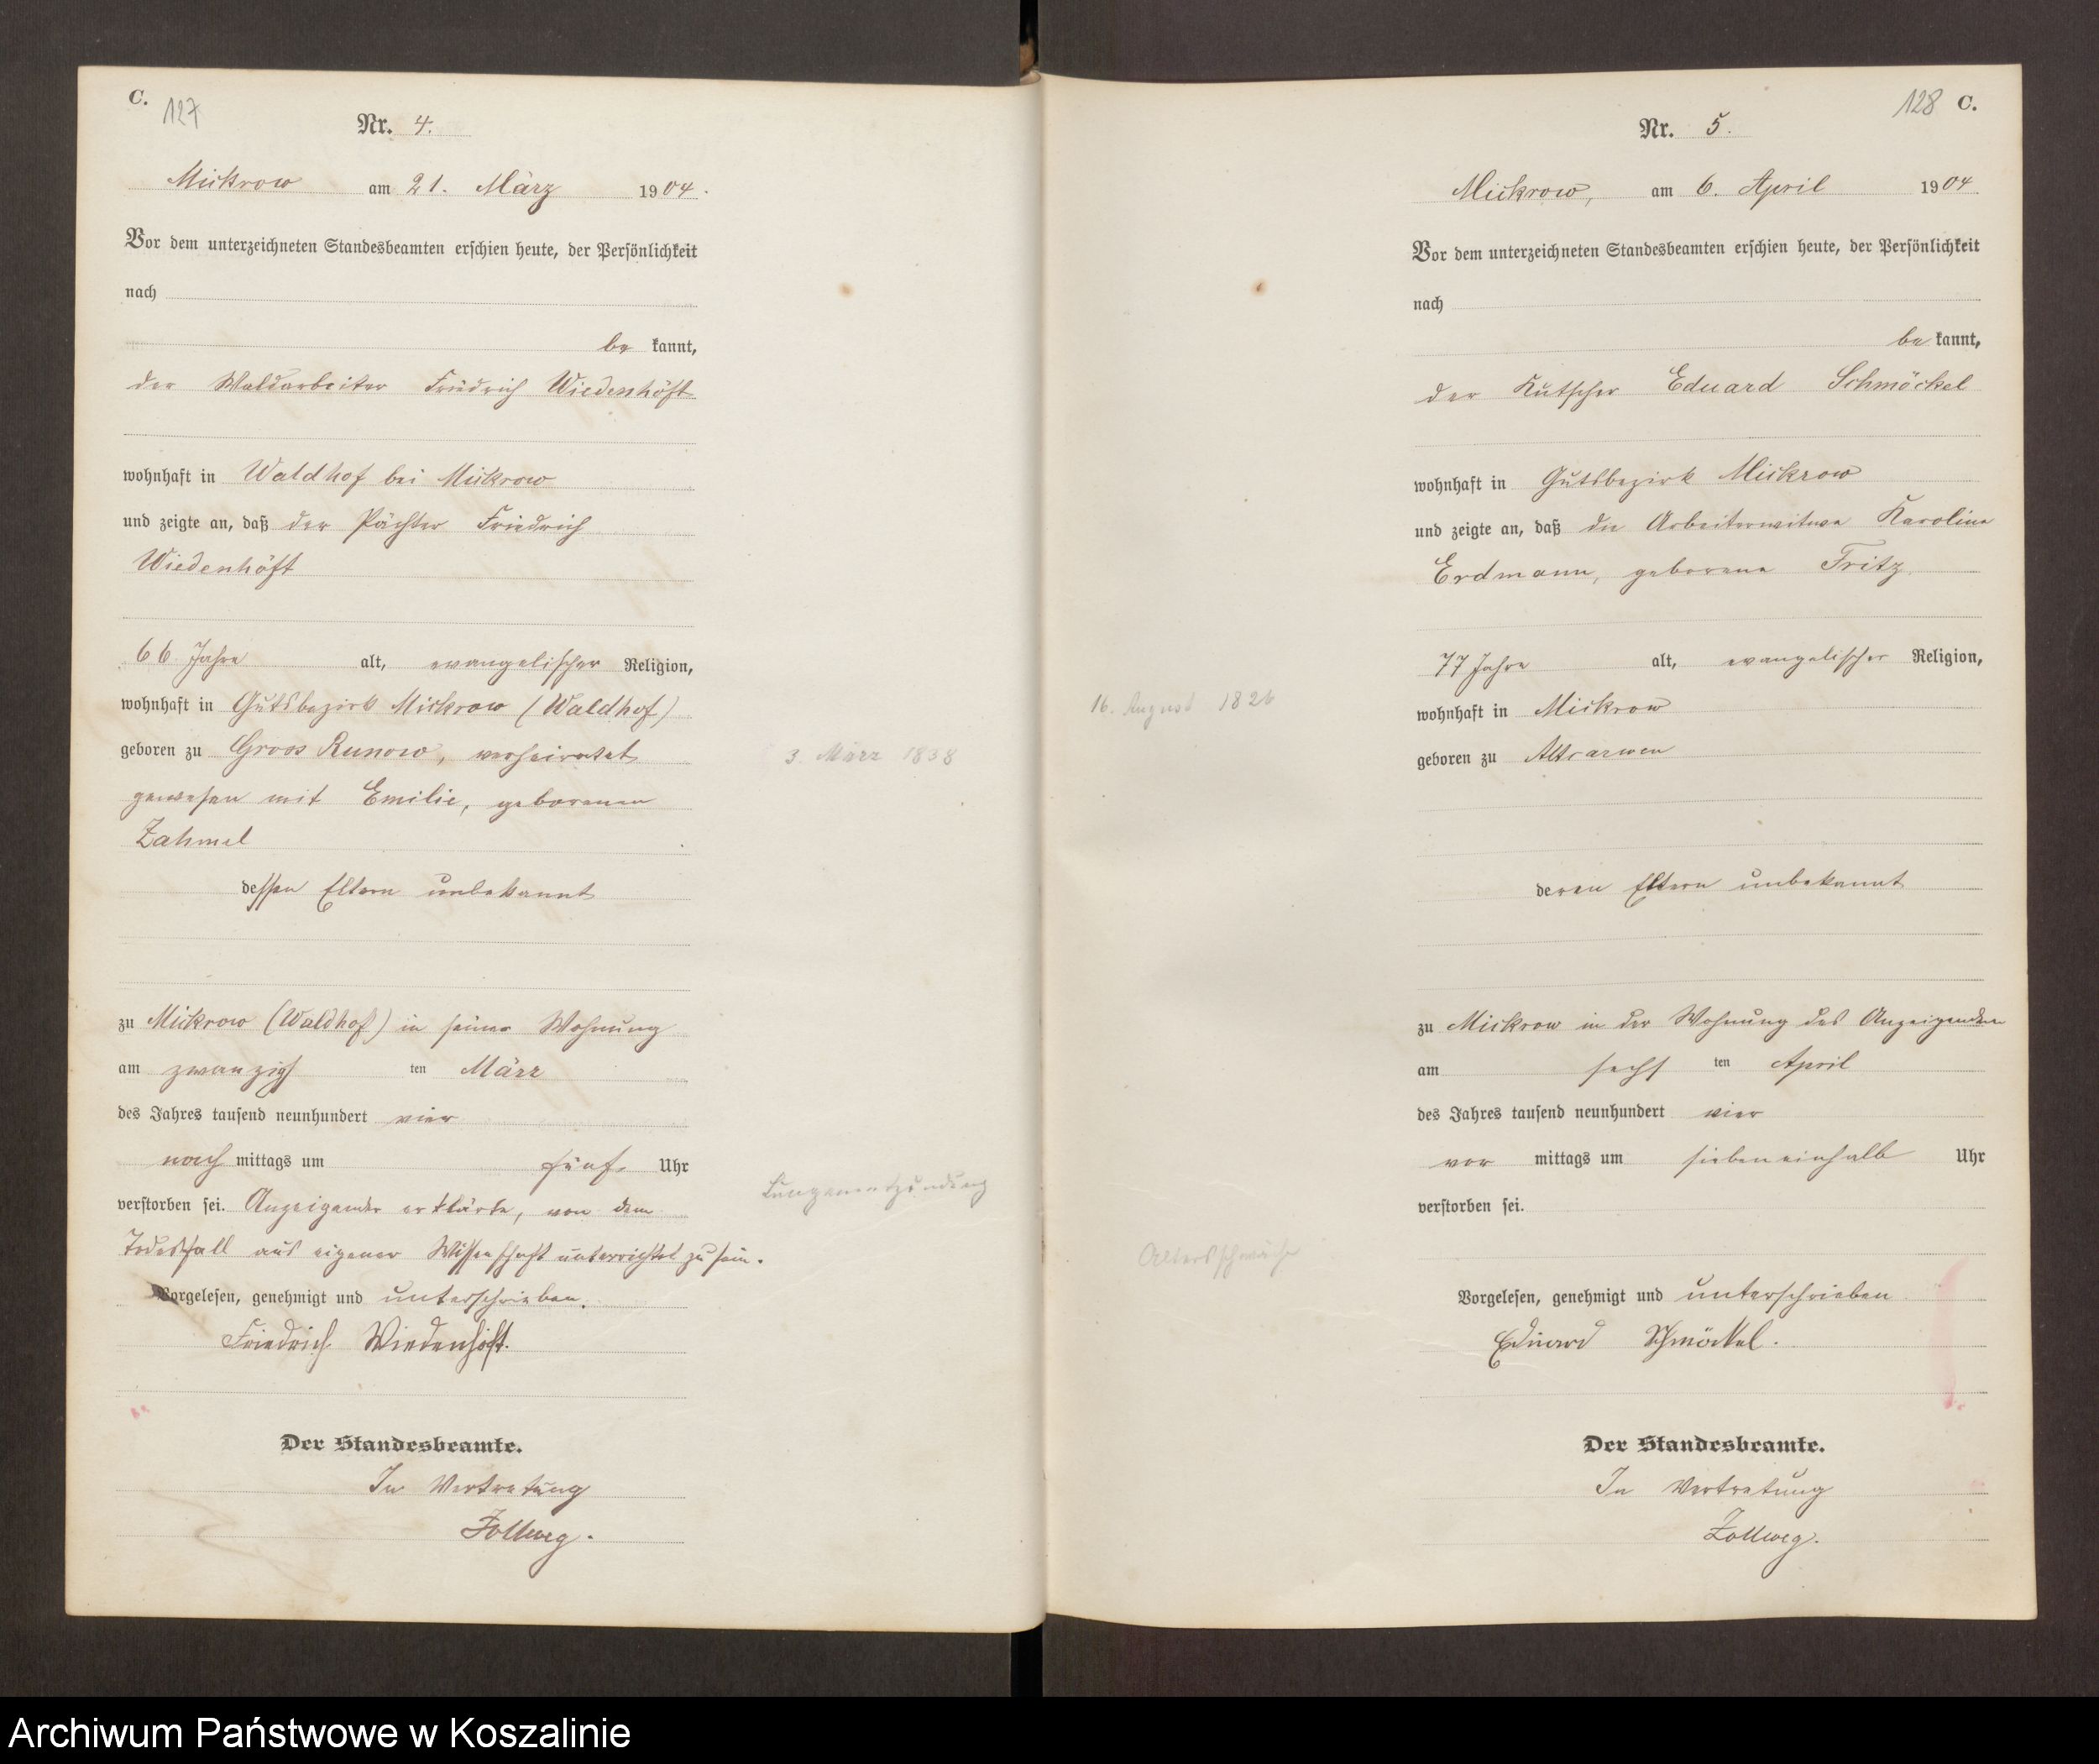 C.
127
Nr. 4.
Mickrow am 21. März 1904.
Vor dem unterzeichneten Standesbeamten erschien heute, der Persönlichkeit
nach
be kannt,
der Waldarbeiter Friedrich Wiedenhöft
wohnhaft in Waldhof bei Mickrow
und zeigte an, daß der Pächter Friedrich
Wiedenhöft
66 Jahre alt, evangelischer Religion,
wohnhaft in Gutsbezirk Mickrow (Waldhof)
geboren zu Gross Runow, verheiratet
3. März 1838
gewesen mit Emilie, geborenen
Zahmel
dessen Eltern unbekannt
zu Mickrow (Waldhof) in seiner Wohnung
am zwanzigs ten März
des Jahres tausend neunhundert vier
nach mittags um fünf Uhr
Lungenentzündung
verstorben sei. Anzeigender erklärte, von dem
Todesfall aus eigener Wissenschaft unterrichtet zu sein.
Vorgelesen, genehmigt und unterschrieben.
Friedrich Wiedenhöft.
Der Standesbeamte.
In Vertretung
Zollweg.
128 C.
Nr. 5.
Mickrow, am 6. April 1904
Vor dem unterzeichneten Standesbeamten erschien heute, der Persönlichkeit
nach
be kannt,
der Kutscher Eduard Schmöckel
wohnhaft in Gutsbezirk Mickrow
und zeigte an, daß die Arbeiterwitwe Karoline
Erdmann, geborene Fritz
77 Jahre alt, evangelischer Religion,
16. August 1826
wohnhaft in Mickrow
geboren zu Altrarwen
deren Eltern unbekannt
zu Mickrow in der Wohnung des Anzeigenden
am sechs ten April
des Jahres tausend neunhundert vier
vor mittags um siebeneinhalb Uhr
verstorben sei.
Altersschwäche
Vorgelesen, genehmigt und unterschrieben
Eduard Schmöckel.
Der Standesbeamte.
In Vertretung
Zollweg.
Archiwum Państwowe w Koszalinie